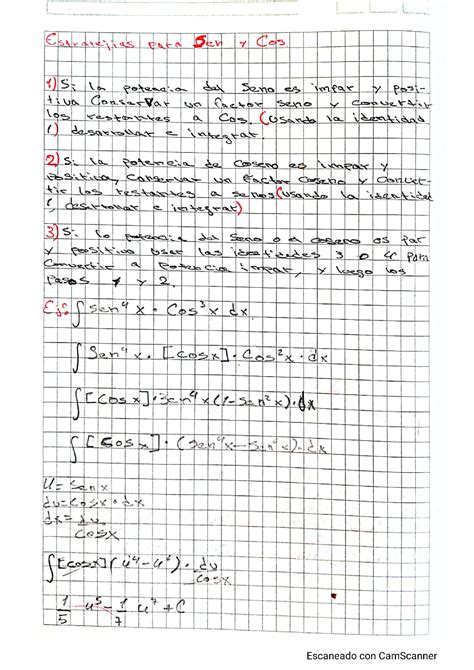 Estratejias para Sen y Cos
1) Si la potencia del Seno es impar y posi-
tiva Conservar un factor seno y convertir
los restantes a Cos. (usando la identidad
1) desarrollar e integrar.
2) Si la potencia de Coseno es impar y
positiva, Conservar un factor Coseno y Conver-
tir los restantes a senos (usando la identidad
1, desarrollar e integrar)
3) Si la potencia del Seno o el coseno es par
y positivo usar las identidades 3 o 4 para
Convertir a Potencia impar, y luego los
pasos 1 y 2.
Ej: ∫ Sen⁴ x · Cos³ x dx.
∫ Sen⁴x · [Cosx] · Cos²x · dx
∫ [Cos x] · Sen⁴x (1 - Sen²x) · dx
∫ [Cosx] · (Sen⁴x - Sen⁶x) · dx
u = Senx
du = Cosx · dx
dx = du/Cosx
∫ [cosx] (u⁴ - u⁶) · du/cosx
1/5 u⁵ - 1/7 u⁷ + C
Escaneado con CamScanner